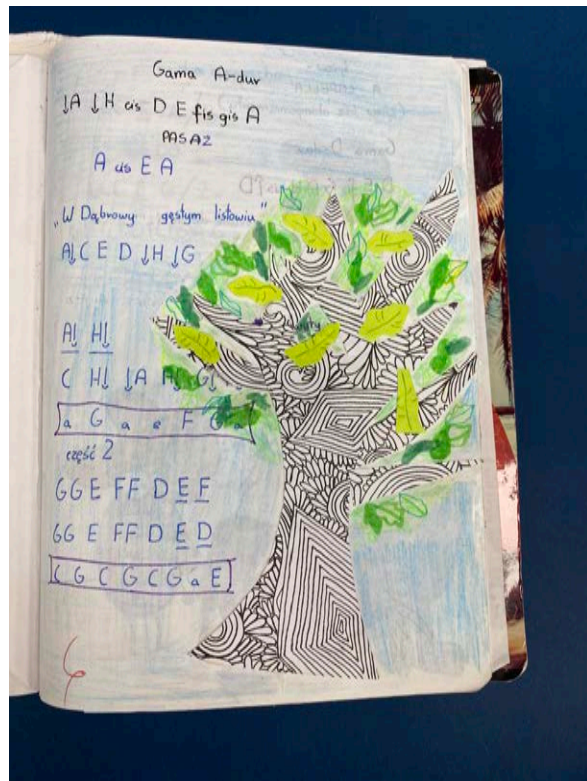 Gama A-dur
↓A ↓H cis D E fis gis A
PASAŻ
A cis E A
„W Dąbrowy gęstym listowiu”
A↓ C E D ↓H ↓G
A↓ H↓
C H↓ ↓A A↓ G↓
a G a e F G a
część 2
GG E FF D E F
GG E FF D E D
C G C G C G a E